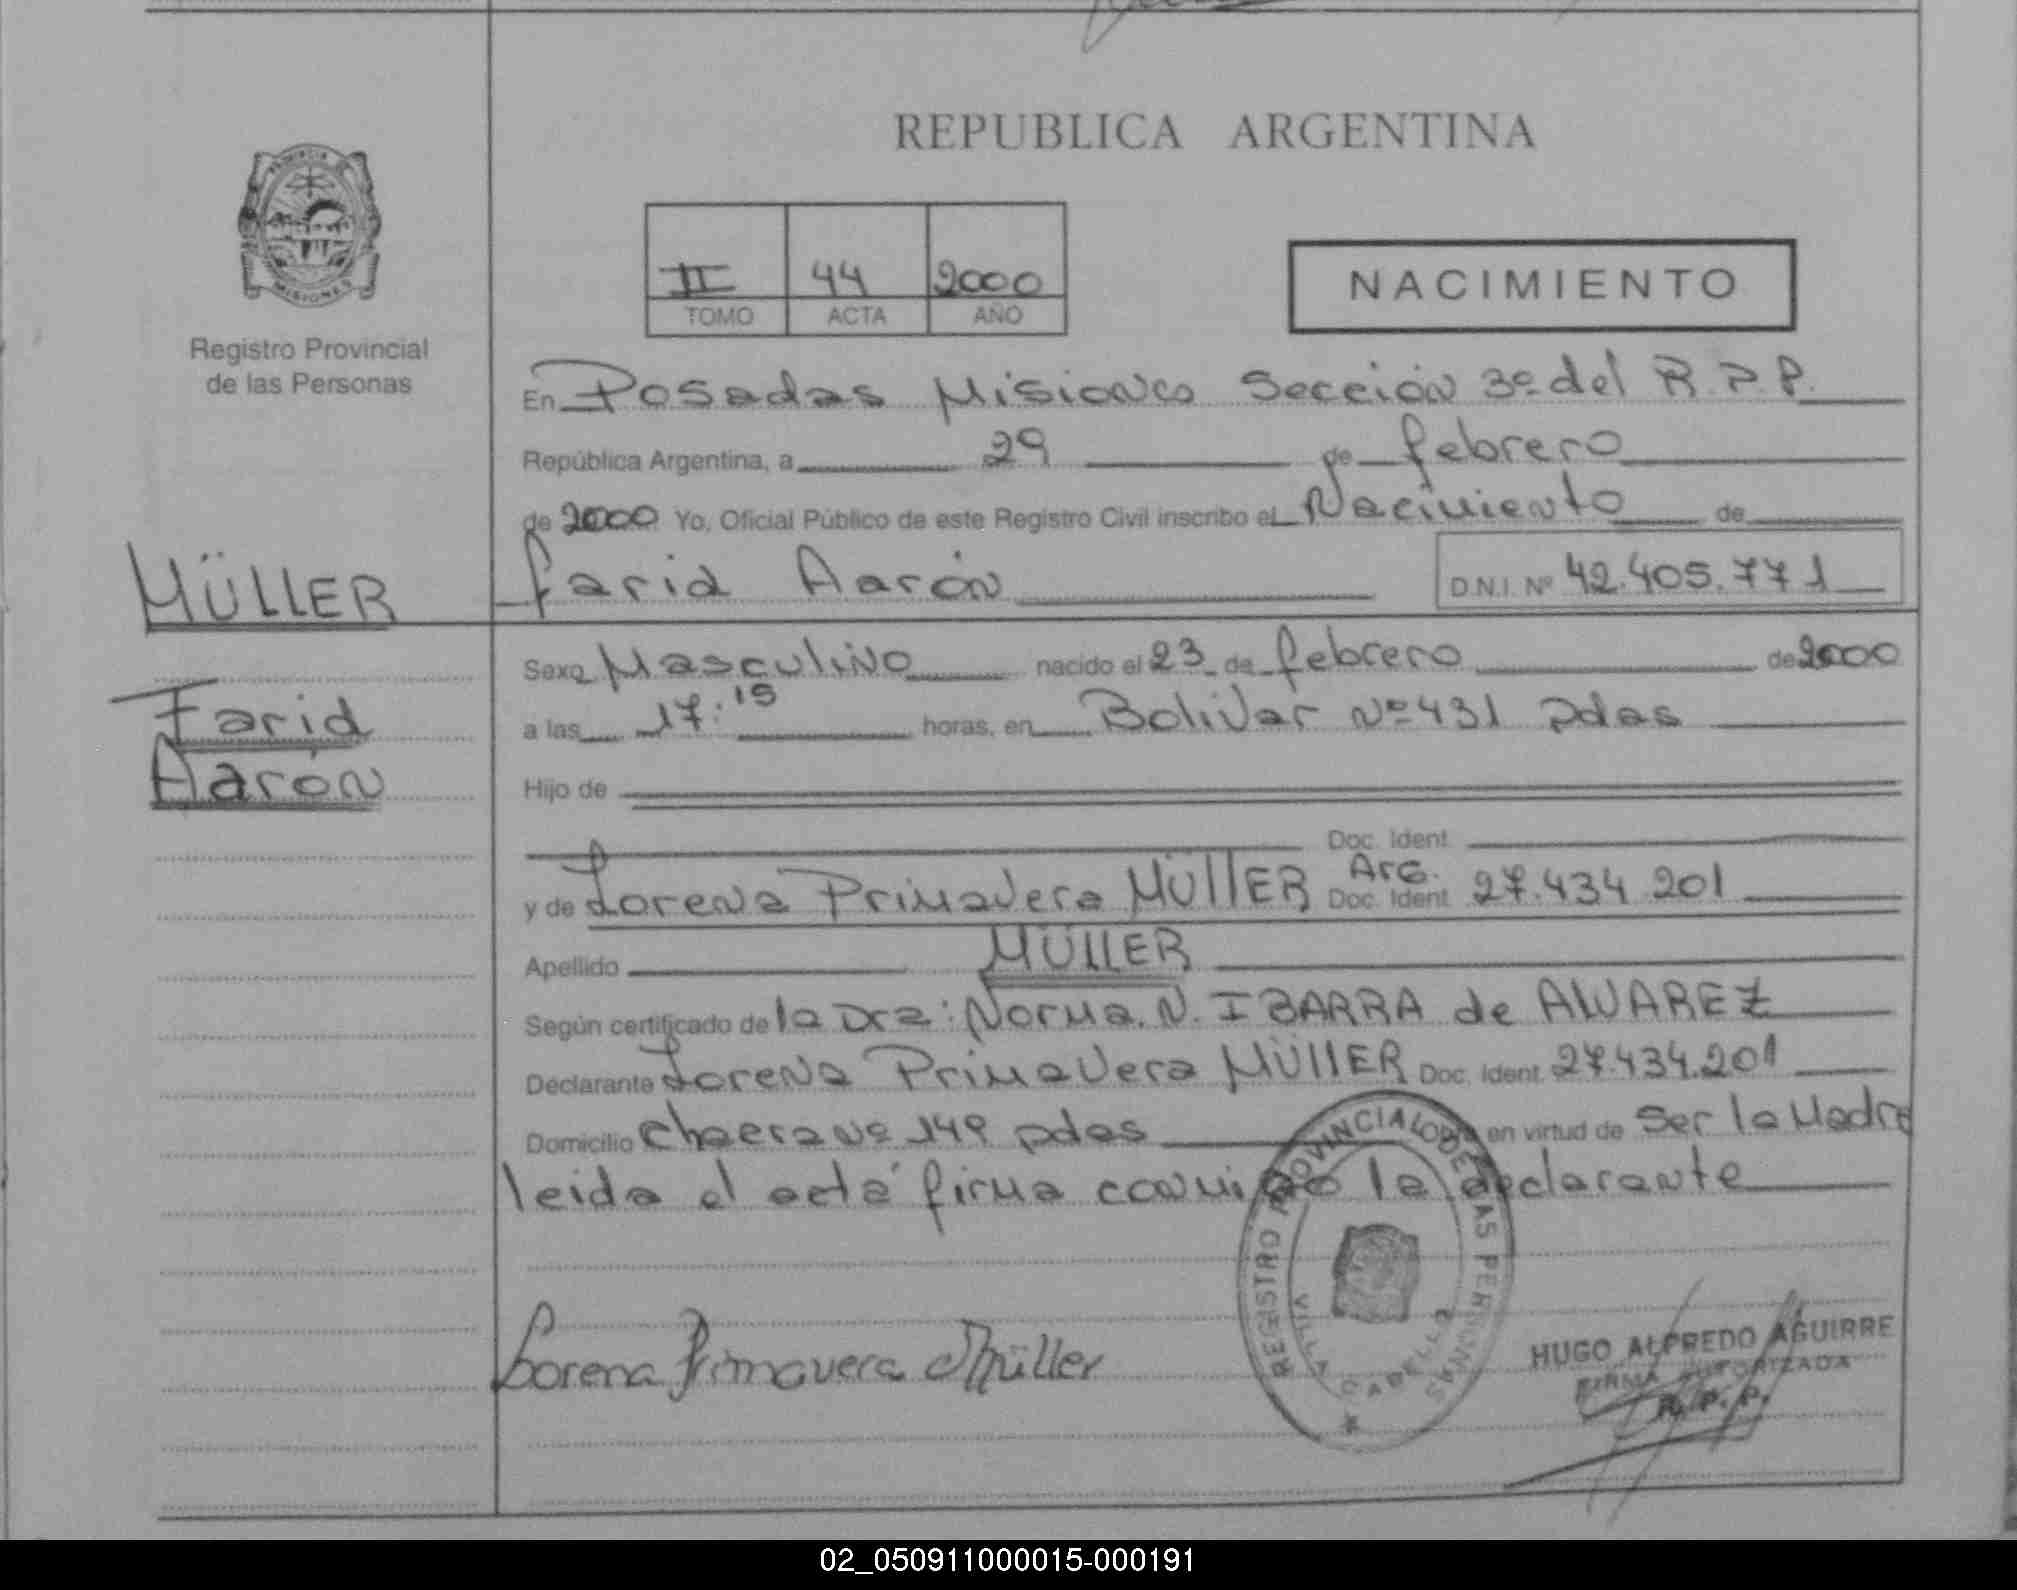 REPUBLICA ARGENTINA
PROVINCIA DE
MISIONES
Registro Provincial
de las Personas
II 44 2000
TOMO ACTA AÑO
NACIMIENTO
En Posadas Misiones Sección 3º del R.P.P.
República Argentina, a 29 de febrero
de 2000 Yo, Oficial Público de este Registro Civil inscribo el Nacimiento de
MÜLLER
Farid Aarón D.N.I. Nº 42.405.771
Sexo Masculino nacido el 23 de febrero de 2000
Farid
a las 17:15 horas, en Bolivar Nº 431 pdas
Aarón
Hijo de
Doc. Ident.
y de Lorena Primavera MÜllER Arg. Doc. Ident. 27.434.201
Apellido MÜLLER
Según certificado de la Dra: Norma. N. IBARRA de ALVAREZ
Declarante Lorena Primavera MÜllER Doc. Ident. 27.434.201
Domicilio Chacra Nº 149 pdas en virtud de Ser la Madre
leida el acta firma conmigo la declarante
REGISTRO PROVINCIAL DE LAS PERSONAS
VILLA CABELLO
Lorena Primavera Müller
HUGO ALFREDO AGUIRRE
FIRMA AUTORIZADA
R.P.P.
02_050911000015-000191